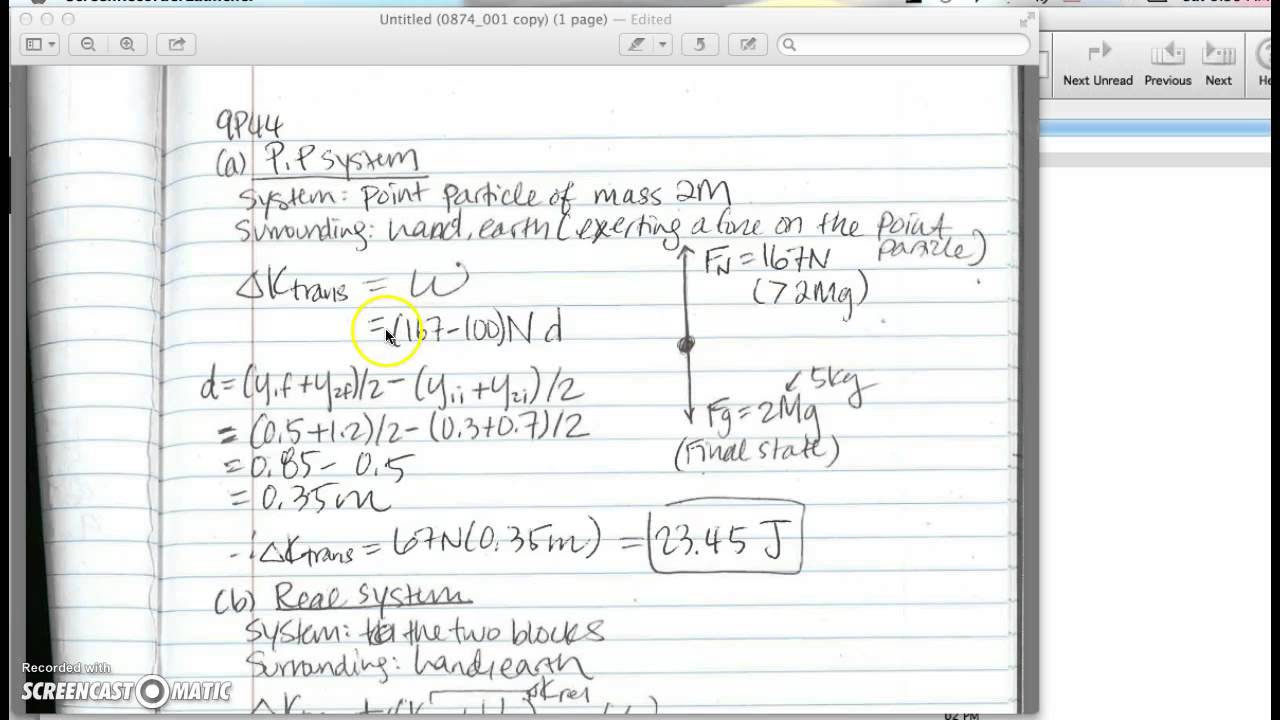 Untitled (0874_001 copy) (1 page) — Edited
Next Unread Previous Next
9P44
(a) P.P system
System: point particle of mass 2M
Surrounding: hand, earth (exerting a force on the point particle)
ΔKtrans = W
= (167-100)N d
FN = 167N
(>2Mg)
d = (y1f + y2f)/2 - (y1i + y2i)/2
= (0.5+1.2)/2 - (0.3+0.7)/2
= 0.85 - 0.5
= 0.35m
5kg
Fg = 2Mg
(Final state)
ΔKtrans = 67N(0.35m) = 23.45 J
(b) Real system
System: the two blocks
Surrounding: hand, earth
Krel
Recorded with
SCREENCAST-O-MATIC